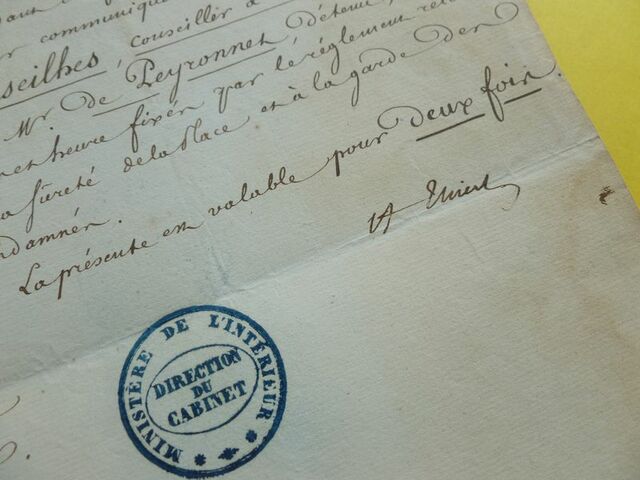 communiquer
seilhes, conseiller à
Mr. de Peyronnet, détenu,
et heure fixés par le réglement
sûreté de la Place et à la garde des
ndamnés.
La présente est valable pour deux fois.
A Thiers
MINISTÈRE DE L'INTÉRIEUR
DIRECTION
DU
CABINET